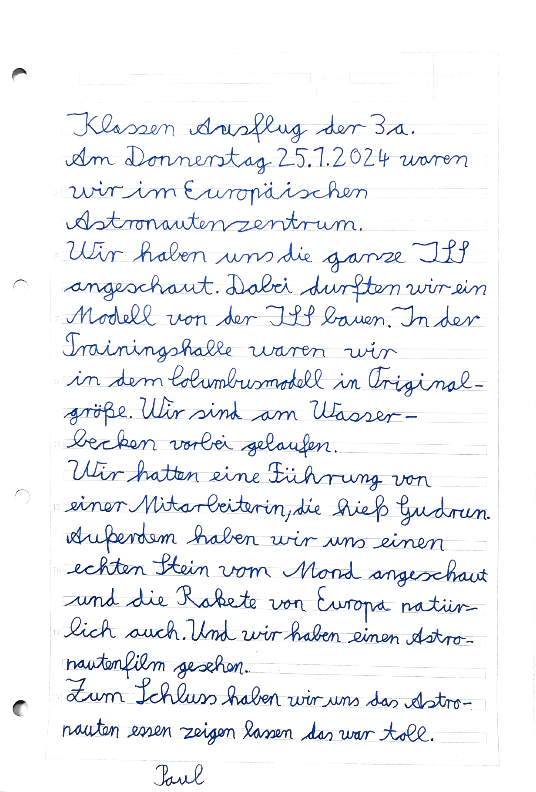 Klassen Ausflug der 3a.
Am Donnerstag 25.1.2024 waren
wir im Europäischen
Astronautenzentrum.
Wir haben uns die ganze ISS
angeschaut. Dabei durften wir ein
Modell von der ISS bauen. In der
Trainingshalle waren wir
in dem Columbusmodell in Original-
größe. Wir sind am Wasser-
becken vorbei gelaufen.
Wir hatten eine Führung von
einer Mitarbeiterin, die hieß Gudrun.
Außerdem haben wir uns einen
echten Stein vom Mond angeschaut
und die Rakete von Europa natür-
lich auch. Und wir haben einen Astro-
nautenfilm gesehen.
Zum Schluss haben wir uns das Astro-
nauten essen zeigen lassen das war toll.
Paul